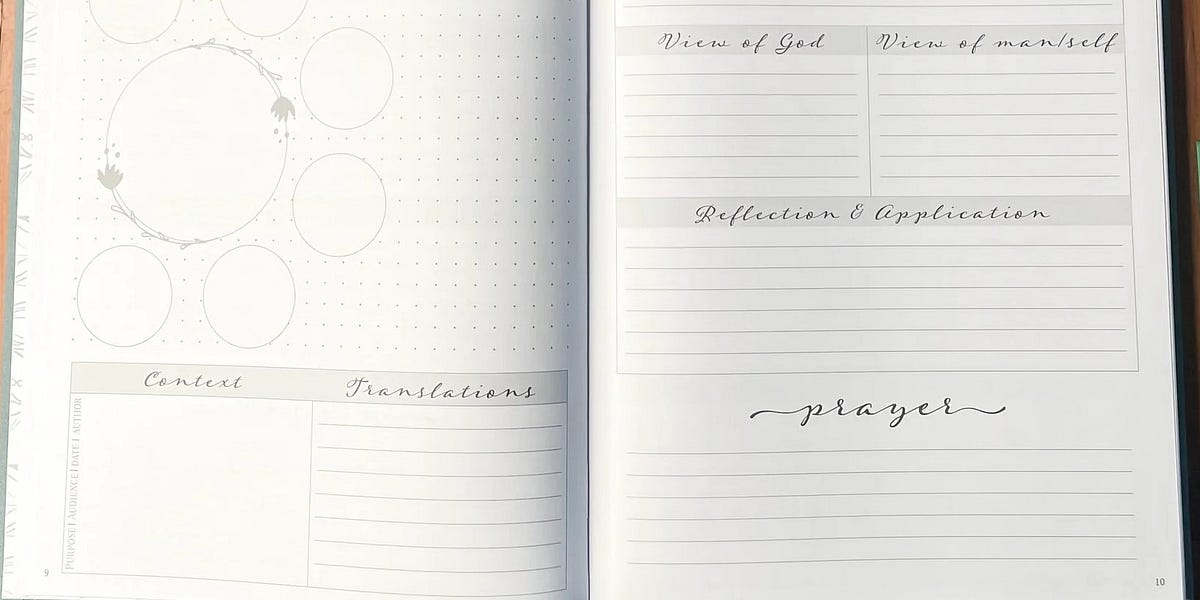 Context
Translations
PURPOSE | AUDIENCE | DATE | AUTHOR
9
View of God
View of man/self
Reflection & Application
prayer
10